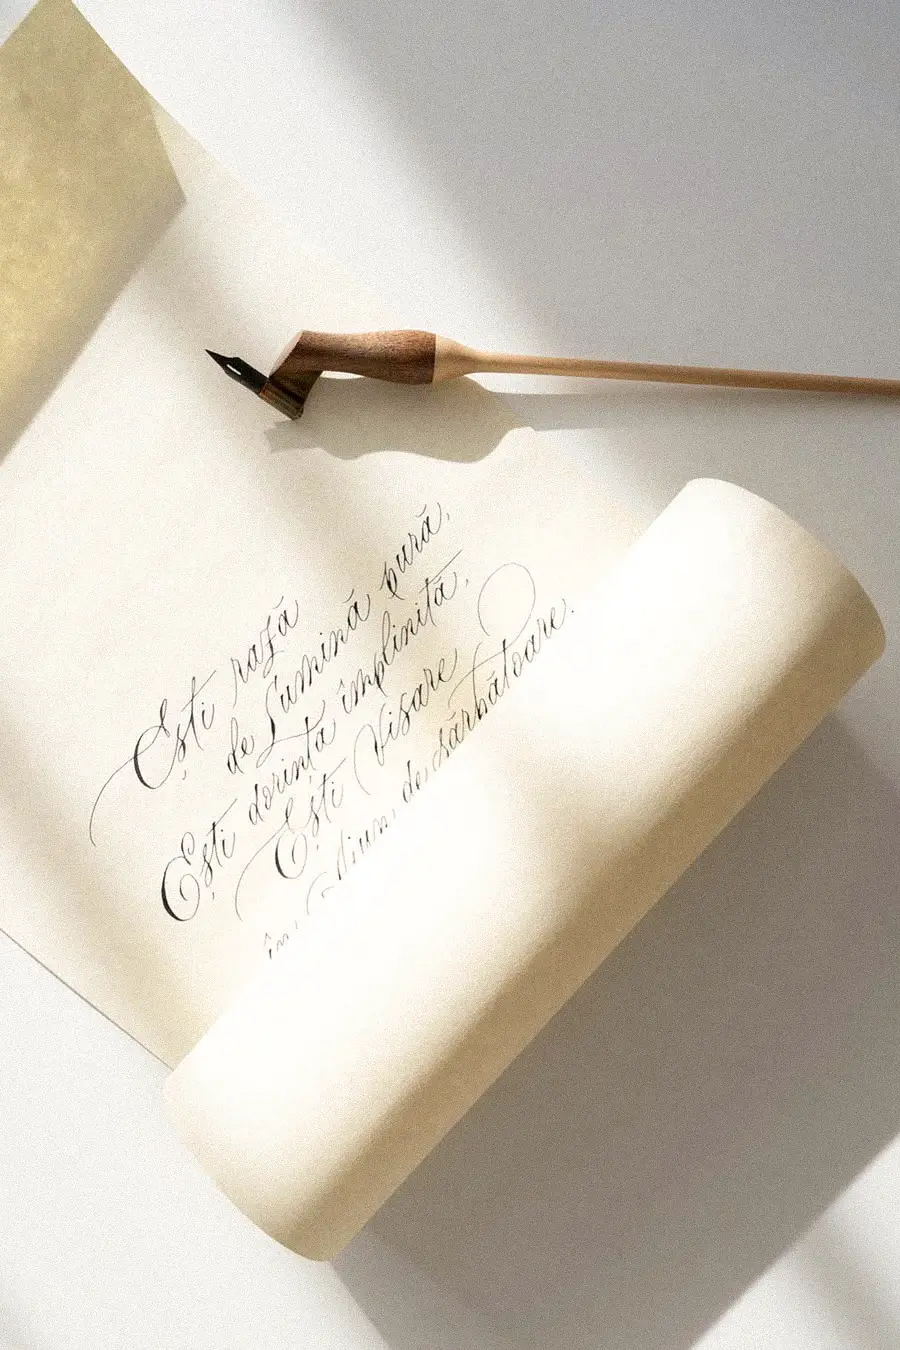 Ești rază
de Lumină pură,
Ești dorința împlinită,
Ești Visare
în de sărbătoare.